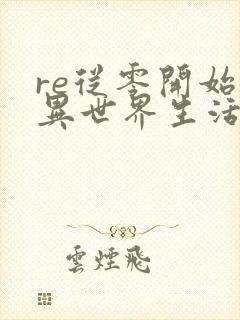 re從零開始
異世界生活
雲煙飛